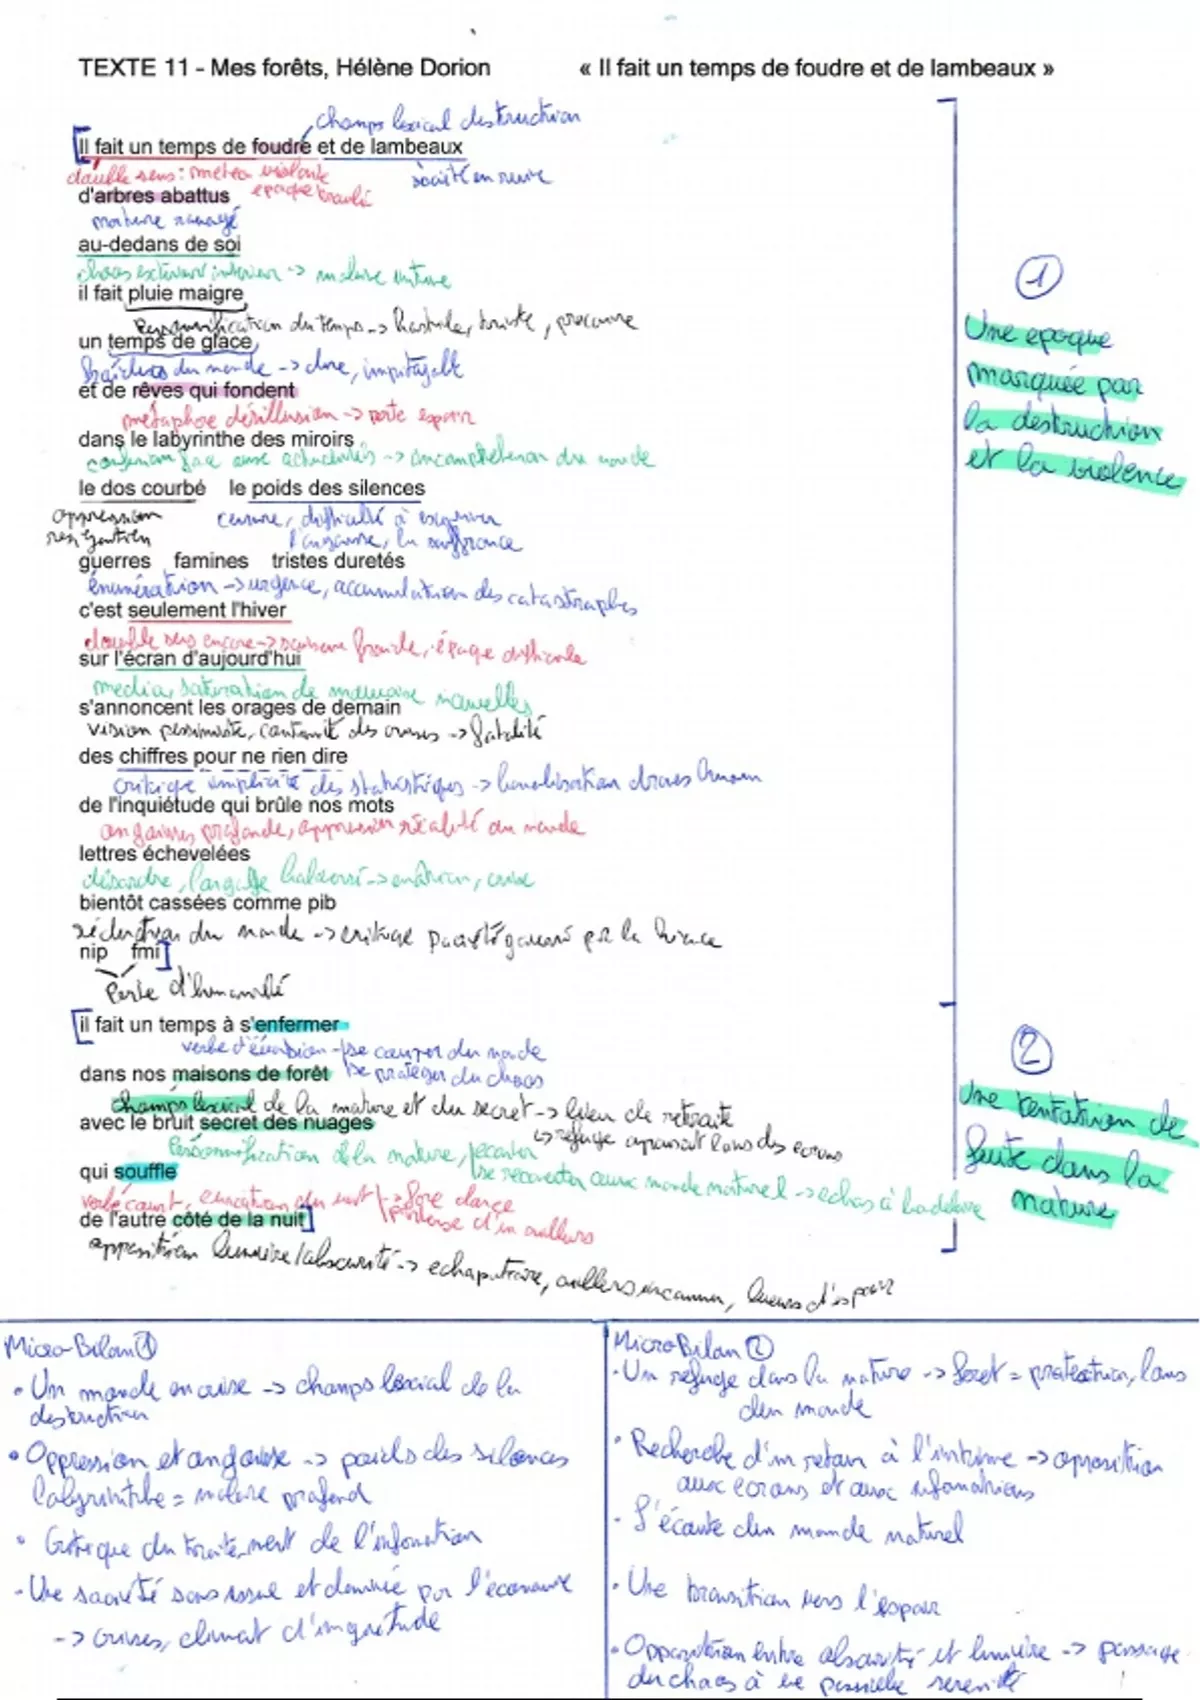 TEXTE 11 - Mes forêts, Hélène Dorion « Il fait un temps de foudre et de lambeaux »
champs lexical destruction
Il fait un temps de foudre et de lambeaux
double sens : météo violente société en ruine
d'arbres abattus epoque
au-dedans de soi
chaos exterieur interieur ->
il fait pluie maigre
Personnification du temps ->
un temps de glace
du monde -> dure, impitoyable
et de rêves qui fondent
métaphore désillusion -> perte espoir
dans le labyrinthe des miroirs
confusion face aux actualités -> incompréhension du monde
le dos courbé le poids des silences
oppression censure, difficulté à exprimer
resignation l'angoisse, la souffrance
guerres famines tristes duretés
énumération -> urgence, accumulation des catastrophes
c'est seulement l'hiver
double sens encore -> froide, époque difficile
sur l'écran d'aujourd'hui
media, saturation de mauvaise nouvelles
s'annoncent les orages de demain
vision pessimiste, des crises -> fatalité
des chiffres pour ne rien dire
critique implicite des statistiques -> banalisation drames humain
de l'inquiétude qui brûle nos mots
angoisses profonde, oppression réalité du monde
lettres échevelées
désordre, langage -> émotion, crise
bientôt cassées comme pib
réduction du monde -> critique par la finance
nip fmi
Perte d'humanité
①
Une epoque
marquée par
la destruction
et la violence
il fait un temps à s'enfermer
verbe d'évasion - se couper du monde
dans nos maisons de forêt se protéger du chaos
champs lexical de la nature et du secret -> lieu de retraite
avec le bruit secret des nuages -> refuge loin des ecrans
Personnification de la nature, se reconnecter aux monde naturel ->
qui souffle
verbe court, du vent -> force
de l'autre côté de la nuit d'un ailleurs
opposition lumière/obscurité -> echapatoire, ailleurs inconnu, lueurs d'espoir
②
Une tentation de
fuite dans la
nature
Micro-Bilan ①
• Un monde en crise -> champs lexical de la
destruction
• Oppression et angoisse -> poids des silences
labyrinthe = profond
• Critique du traitement de l'information
- Une société sans issue et dominée par l'économie
-> crises, climat d'inquiétude
Micro Bilan ②
• Un refuge dans la nature -> foret = protection, loins
du monde
• Recherche d'un retour à l'intime -> opposition
aux ecrans et aux informations
- L'écoute du monde naturel
• Une transition vers l'espoir
• Opposition entre obscurité et lumière -> passage
du chaos à une possible serenité